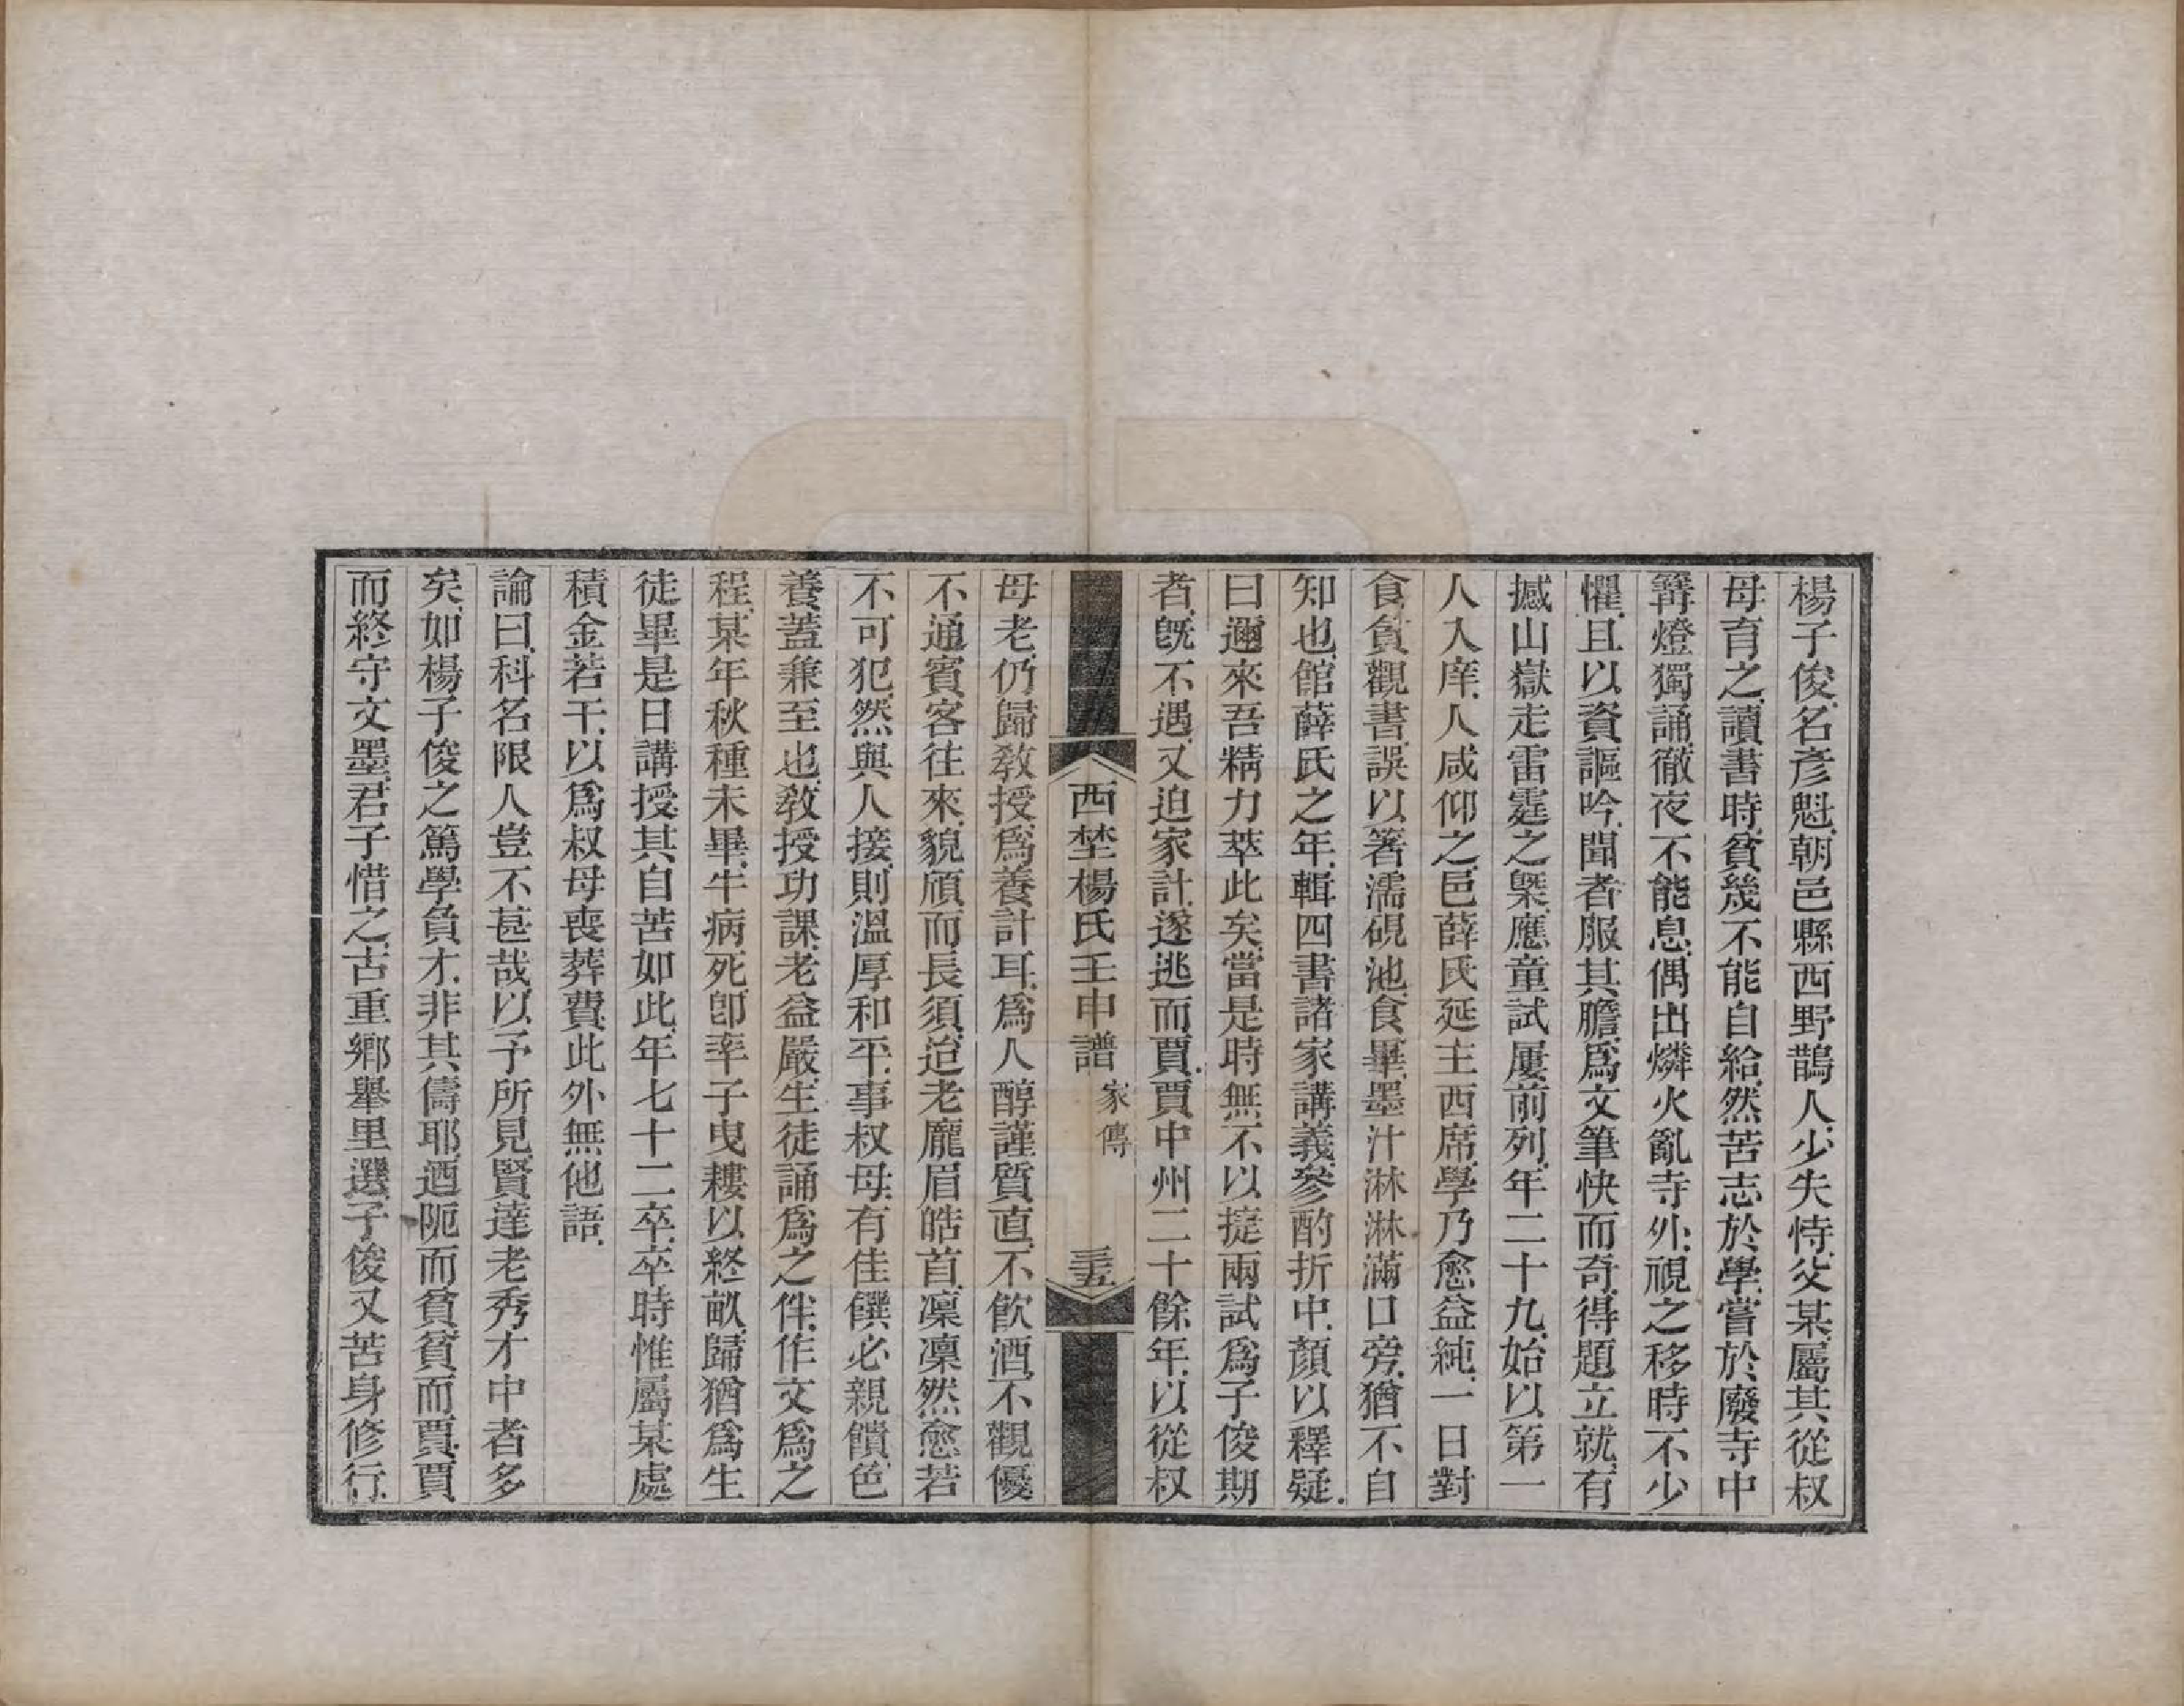 楊子俊、名彥魁、朝邑縣西野鵲人、少失恃、父某、屬其從叔
母育之、讀書時、貧幾不能自給、然苦志於學、嘗於廢寺中
篝燈獨誦、徹夜不能息、偶出燐火亂寺外、視之移時、不少
懼、且以資謳吟、聞者服其膽、爲文筆快而奇、得題立就、有
撼山嶽走雷霆之槩、應童試屢前列、年二十九、始以第一
人入庠、人咸仰之、邑薛氏延主西席、學乃愈益純、一日對
食貧觀書、誤以箸濡硯池、食畢、墨汁淋淋滿口旁、猶不自
知也、館薛氏之年、輯四書諸家講義、參酌折中、顏以釋疑、
曰邇來吾精力萃此矣、當是時無不以㨗兩試爲子俊期
者、旣不遇、又迫家計、遂逃而賈、賈中州二十餘年、以從叔
西埜楊氏壬申譜 家傳 三五
母老、仍歸教授、爲養計耳、爲人醇謹質直、不飮酒、不觀優
不通賓客往來、貌頎而長須、迨老龐眉皓首、凜凜然愈若
不可犯、然與人接、則溫厚和平、事叔母、有佳饌必親饋、色
養蓋兼至也、教授功課、老益嚴、生徒誦爲之伴、作文爲之
程、某年秋種未畢、牛病死、卽率子曳耬以終畝、歸猶爲生
徒畢是日講授、其自苦如此、年七十二卒、卒時惟屬某處
積金若干、以爲叔母喪葬費、此外無他語、
論曰、科名限人豈不甚哉、以予所見、賢達老秀才中者多
矣、如楊子俊之篤學負才、非其儔耶、迺阨而貧、貧而賈、賈
而終守文墨、君子惜之、古重鄉舉里選、子俊又苦身修行、